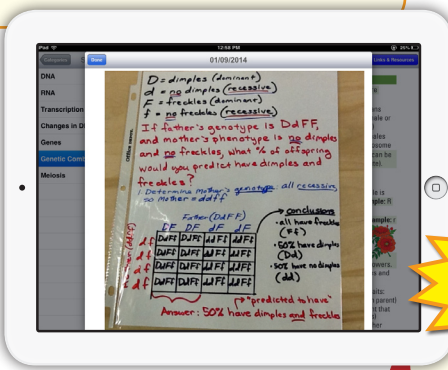 iPad
12:58 PM
26%
Categories
Done
01/09/2014
Links & Resources
DNA
RNA
Transcription
Changes in D
Genes
Genetic Com
Meiosis
Office xerox.
D = dimples (dominant)
d = no dimples (recessive)
F = freckles (dominant)
f = no freckles (recessive)
If father's genotype is DdFF,
and mother's phenotype is no dimples
and no freckles, what % of offspring
would you predict have dimples and
freckles?
1 Determine mother's genotype: all recessive,
so mother = ddff
Father (DdFF)
DF DF dF dF
Mother (ddff)
df DdFf DdFf ddFf ddFf
df DdFf DdFf ddFf ddFf
df DdFf DdFf ddFf ddFf
df DdFf DdFf ddFf ddFf
conclusions
• all have freckles
(Ff)
• 50% have dimples
(Dd)
• 50% have no dimples
(dd)
"predicted to have"
Answer: 50% have dimples and freckles